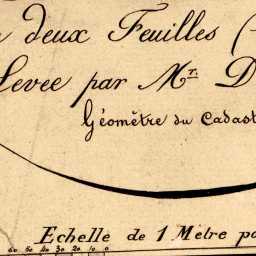 deux Feuilles
Levée par Mr. D
Géomètre du Cadast
Echelle de 1 Mètre po
60 50 40 30 20 10 0